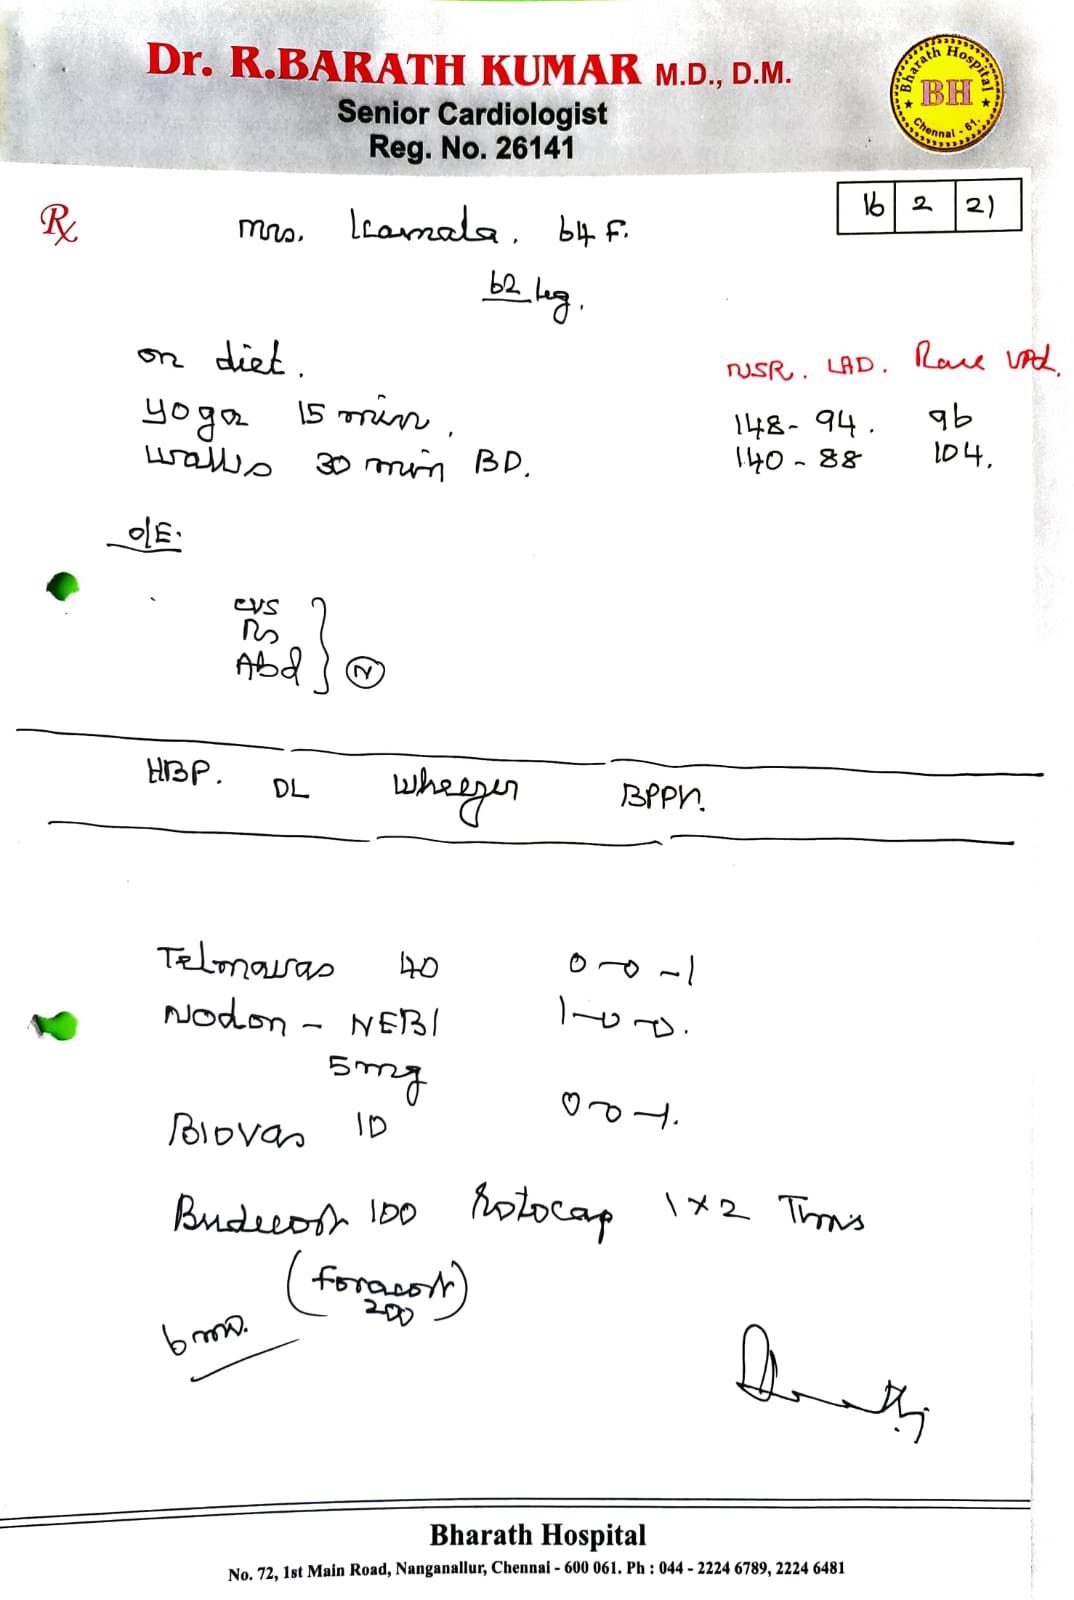 Dr. R.BARATH KUMAR M.D., D.M.
Senior Cardiologist
Reg. No. 26141
Bharath Hospital
BH
Chennai - 61.
Rx
16 2 21
Mrs. Kamala. 64 F.
62 kg.
on diet.
NSR. LAD. Rare VPd.
yoga 15 min.
148 - 94. 96
walks 30 min BD.
140 - 88 104.
O/E.
CVS
RS
Abd } N
HBP. DL Wheezer BPPV.
Telmavas 40 0-0-1
Nodon - NEBI 1-0-0.
5mg
Biovas 10 0-0-1.
Budecort 100 Rotocap 1 x 2 Times
(Foracort)
200
6 mo.
Bharath Hospital
No. 72, 1st Main Road, Nanganallur, Chennai - 600 061. Ph : 044 - 2224 6789, 2224 6481